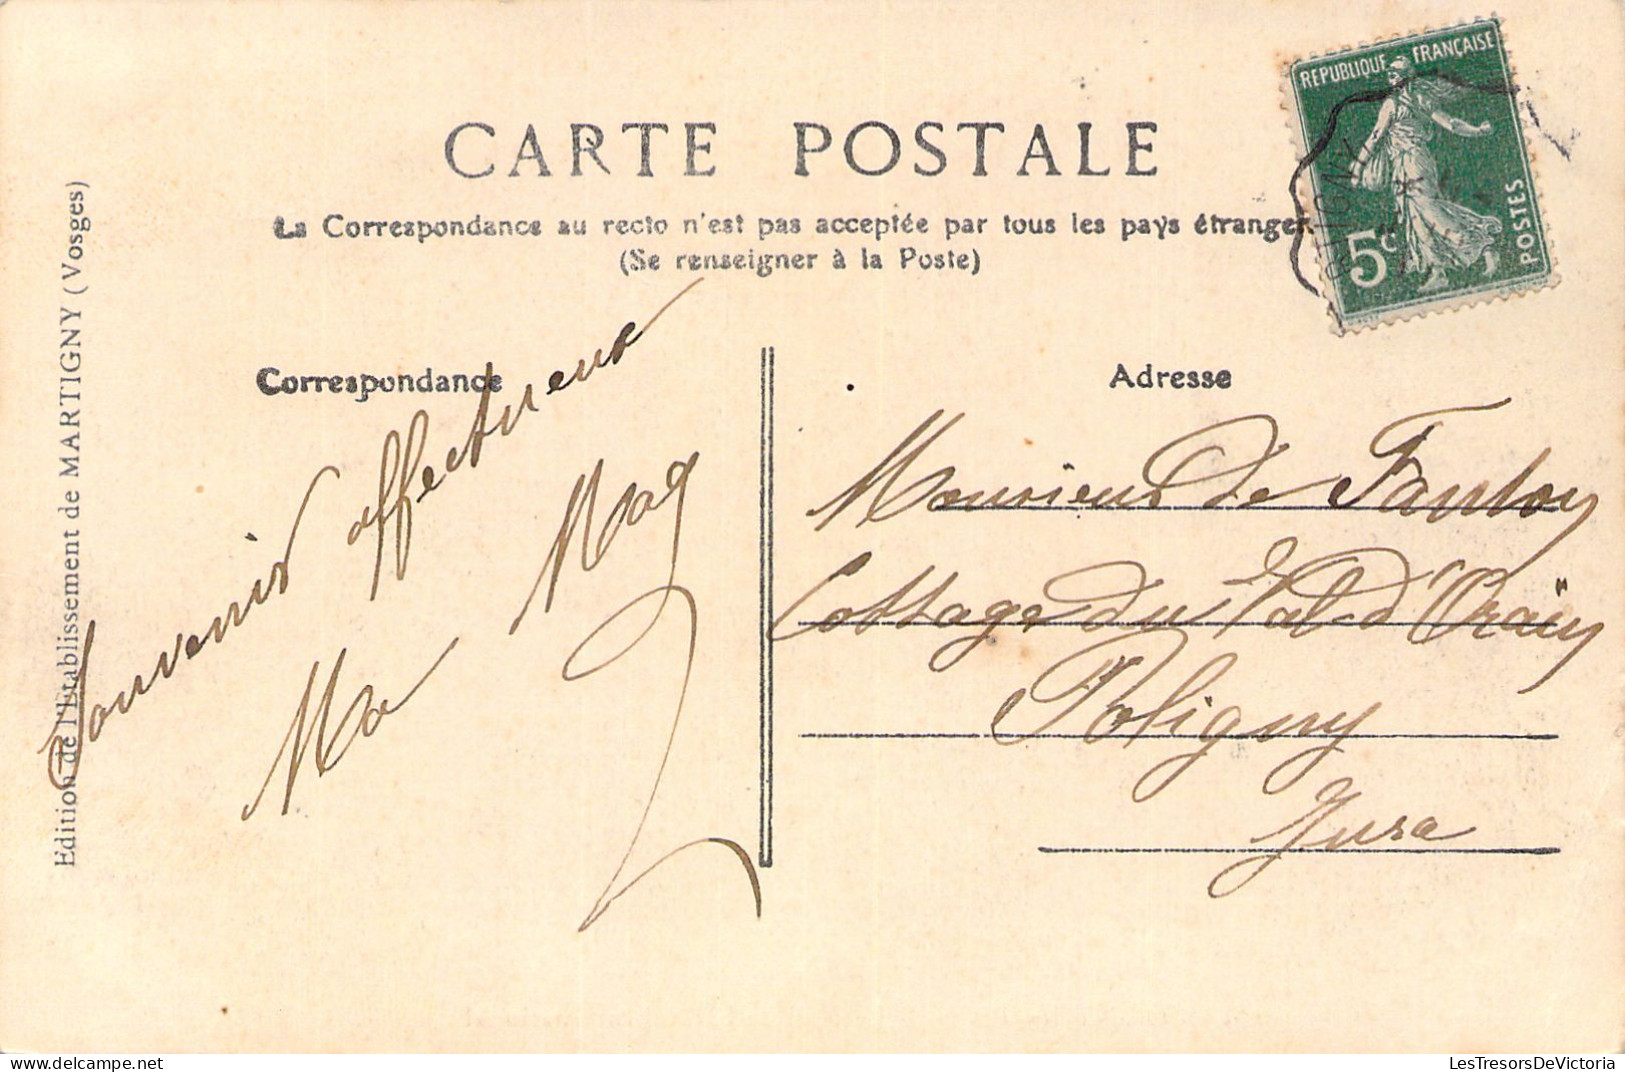 CARTE POSTALE
La Correspondance au recto n'est pas acceptée par tous les pays étranger
(Se renseigner à la Poste)
REPUBLIQUE FRANÇAISE
5c
POSTES
Edition de l'Etablissement de MARTIGNY (Vosges)
Correspondance
Souvenir affectueux
Ma Mag
Adresse
Monsieur De Fanloy
Cottage du Val d'
Poligny
Jura
LesTresorsDeVictoria